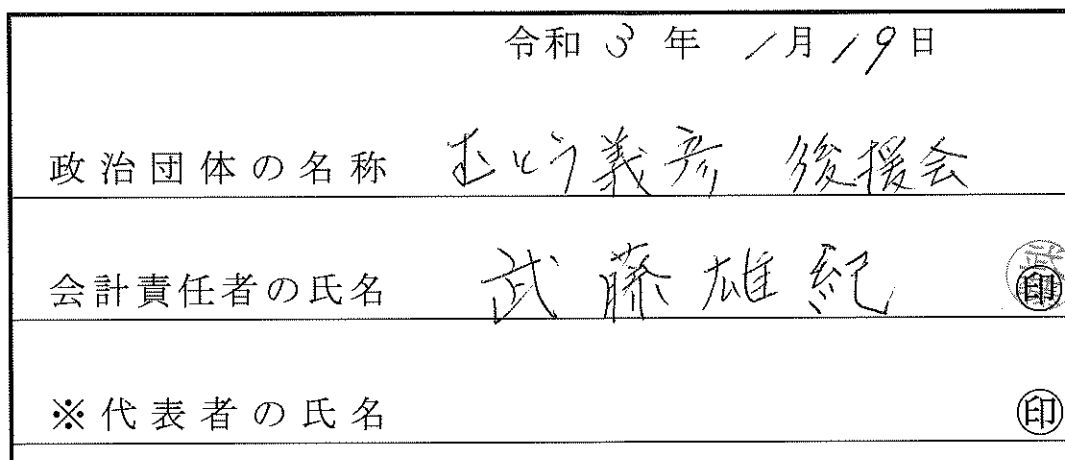 令和 3 年 1月19日
政治団体の名称 むとう義彦 後援会
会計責任者の氏名 武藤雄紀 印
※代表者の氏名 印